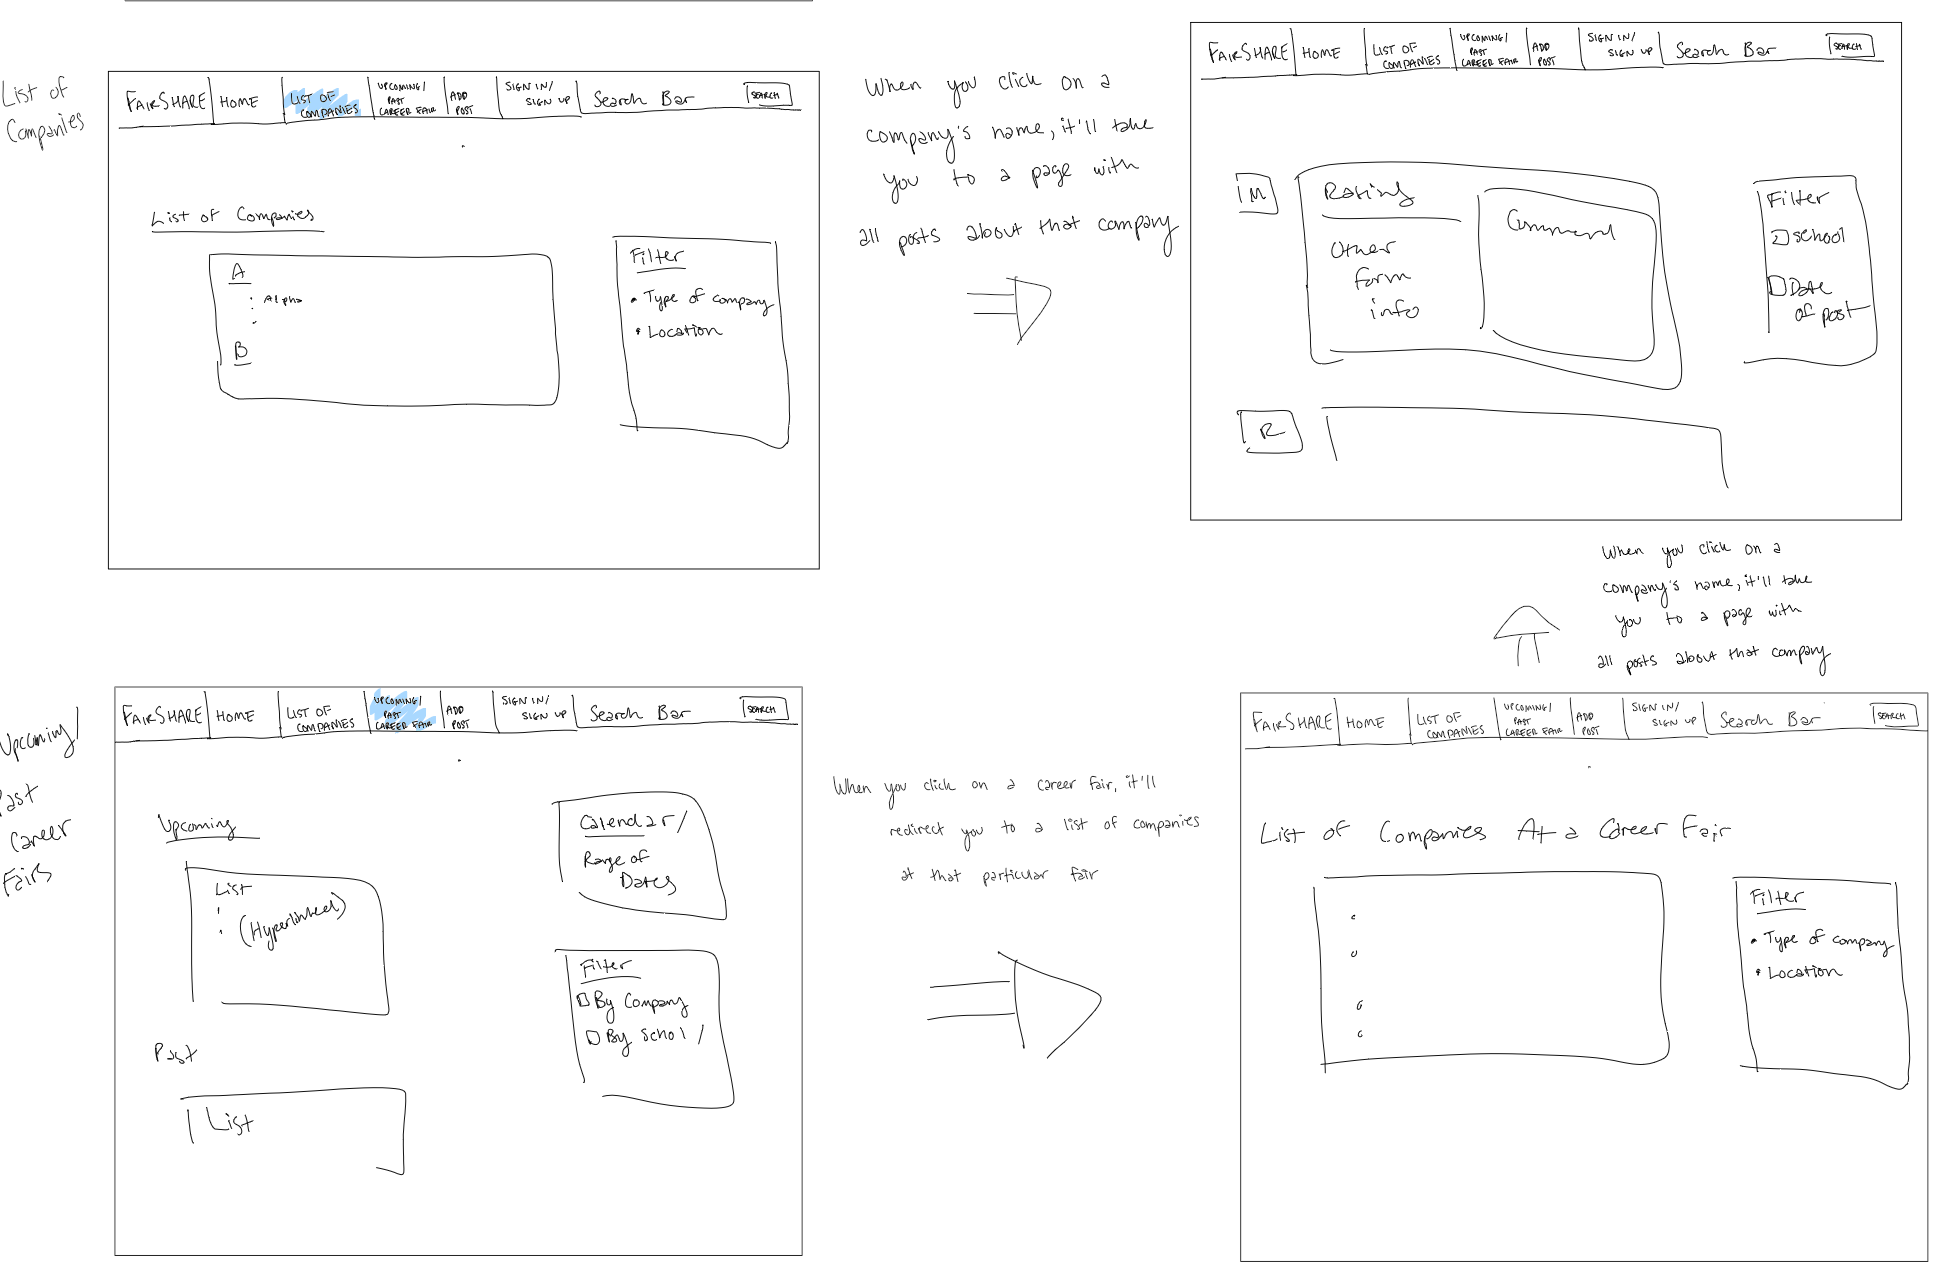 List of
Companies
FAIRSHARE
HOME
LIST OF
COMPANIES
UPCOMING/
PAST
CAREER FAIR
ADD
POST
SIGN IN/
SIGN UP
Search Bar
SEARCH
List of Companies
A
Alpha
B
Filter
• Type of company
• Location
When you click on a
company's name, it'll take
you to a page with
all posts about that company
FAIRSHARE
HOME
LIST OF
COMPANIES
UPCOMING/
PAST
CAREER FAIR
ADD
POST
SIGN IN/
SIGN UP
Search Bar
SEARCH
M
Rating
Other
form
info
Comment
Filter
school
Date
of post
R
When you click on a
company's name, it'll take
you to a page with
all posts about that company
Upcoming/
Past
Career
Fairs
FAIRSHARE
HOME
LIST OF
COMPANIES
UPCOMING/
PAST
CAREER FAIR
ADD
POST
SIGN IN/
SIGN UP
Search Bar
SEARCH
Upcoming
List
(Hyperlinked)
Past
List
Calendar/
Range of
Dates
Filter
By Company
By Schol /
When you click on a career fair, it'll
redirect you to a list of companies
at that particular fair
FAIRSHARE
HOME
LIST OF
COMPANIES
UPCOMING/
PAST
CAREER FAIR
ADD
POST
SIGN IN/
SIGN UP
Search Bar
SEARCH
List of Companies At a Career Fair
Filter
• Type of company
• Location